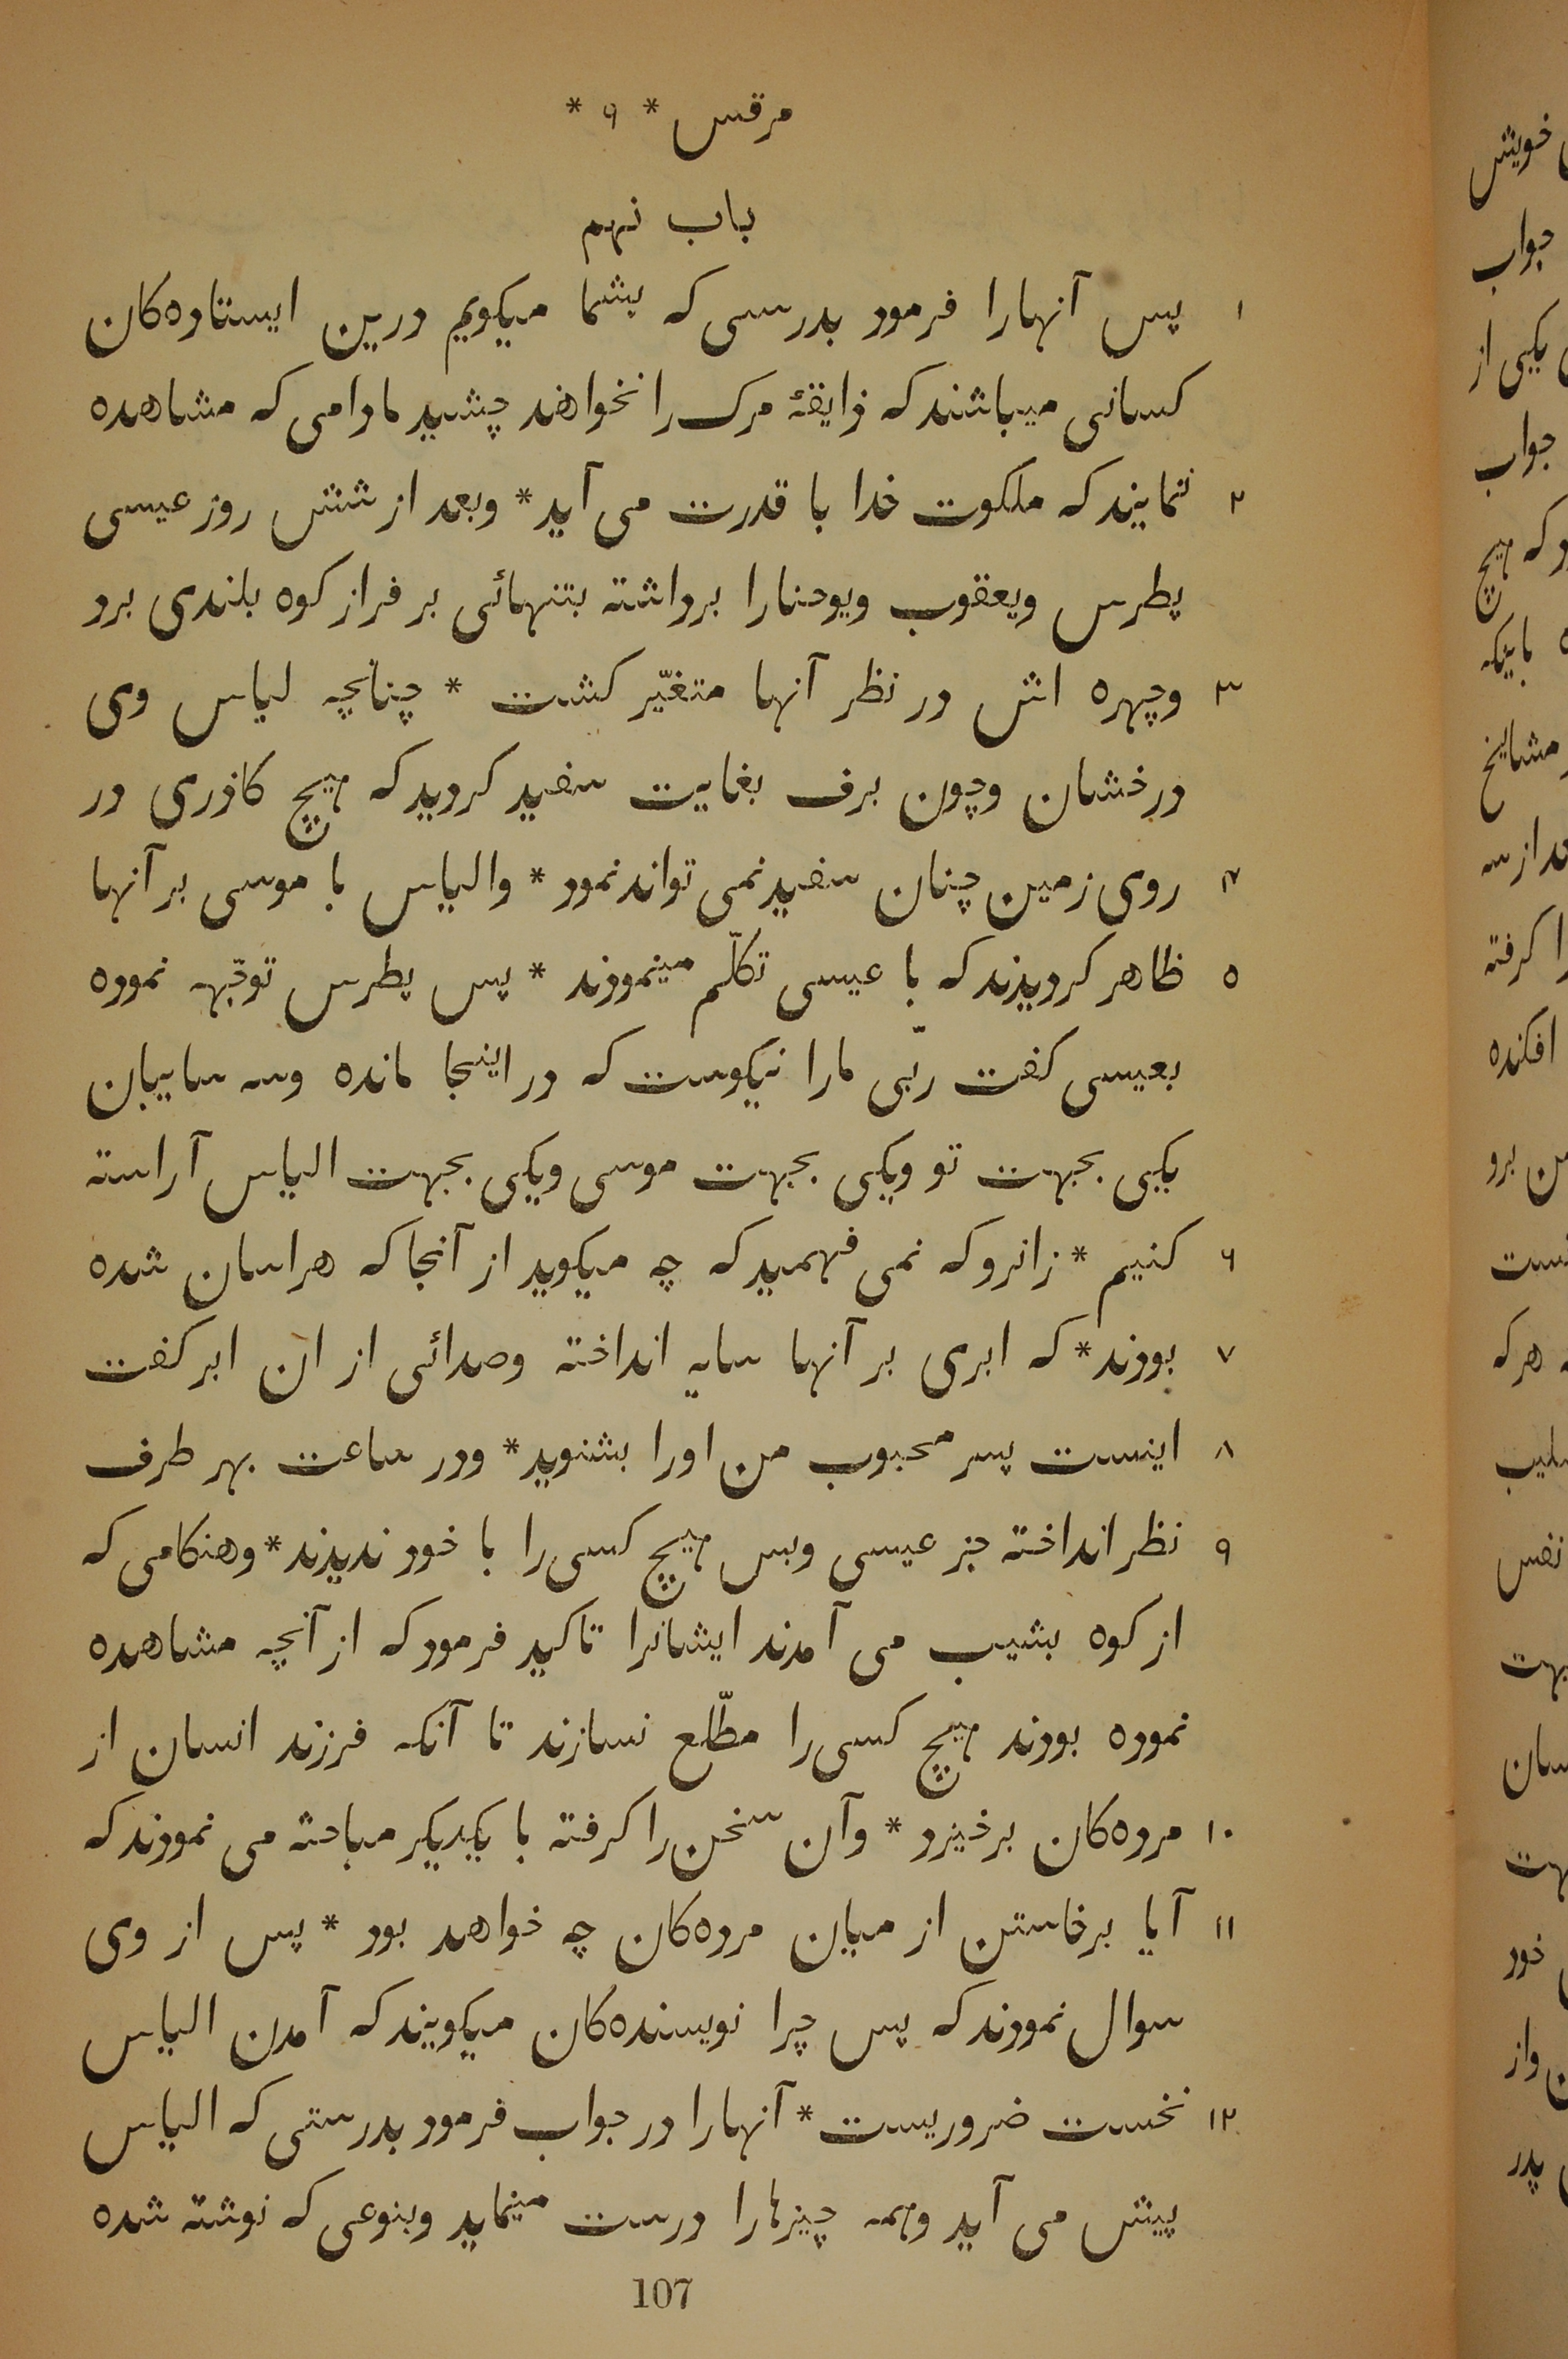 مرقس * ۹ *
باب نهم
۱ پس آنهارا فرمود بدرسی که بشما میکویم درین ایستاده‌کان
کسانی میباشند که ذایقهٔ مرک را نخواهند چشید مادامی که مشاهده
۲ ننمایند که ملکوت خدا با قدرت می آید * وبعد از شش روز عیسی
پطرس ویعقوب ویوحنارا برداشته بتنهائی بر فراز کوه بلندی برد
۳ وچهره اش در نظر آنها متغیّر کشت * چنانچه لباس وی
درخشان وچون برف بغایت سفید کردید که هیچ کاذری در
۴ روی زمین چنان سفید نمی تواند نمود * والیاس با موسی بر آنها
۵ ظاهر کردیدند که با عیسی تکلّم مینمودند * پس پطرس توجّهه نموده
بعیسی کفت ربّی مارا نیکوست که در اینجا مانده وسه سایبان
یکیی بجهت تو ویکی بجهت موسی ویکی بجهت الیاس آراسته
۶ کنیم * زانرو که نمی فهمید که چه میکوید از آنجا که هراسان شده
۷ بودند * که ابری بر آنها سایه انداخته وصدائی از ان ابر کفت
۸ اینست پسر محبوب من اورا بشنوید * ودر ساعت بهر طرف
۹ نظر انداخته جز عیسی وبس هیچ کسی را با خود ندیدند * وهنکامی که
از کوه بشیب می آمدند ایشانرا تاکید فرمود که از آنچه مشاهده
نموده بودند هیچ کسی را مطّلع نسازند تا آنکه فرزند انسان از
۱۰ مرده‌کان برخیزد * وآن سخن را کرفته با یکدیکر مباحثه می نمودند که
۱۱ آیا برخاستن از میان مرده‌کان چه خواهد بود * پس از وی
سوال نمودند که پس چرا نویسنده‌کان میکویند که آمدن الیاس
۱۲ نخست ضروریست * آنهارا در جواب فرمود بدرستی که الیاس
پیش می آید وهمه چیزهارا درست مینماید وبنوعی که نوشته شده
107
خویش
جواب
یکیی از
جواب
که هیچ
باینکه
مشایخ
از سه
کرفته
افکنده
برو
هر که
نفس
خود
واز
پدر